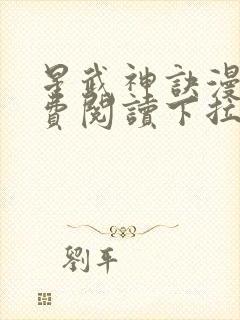 星武神訣漫
費閱讀下拉
劉平